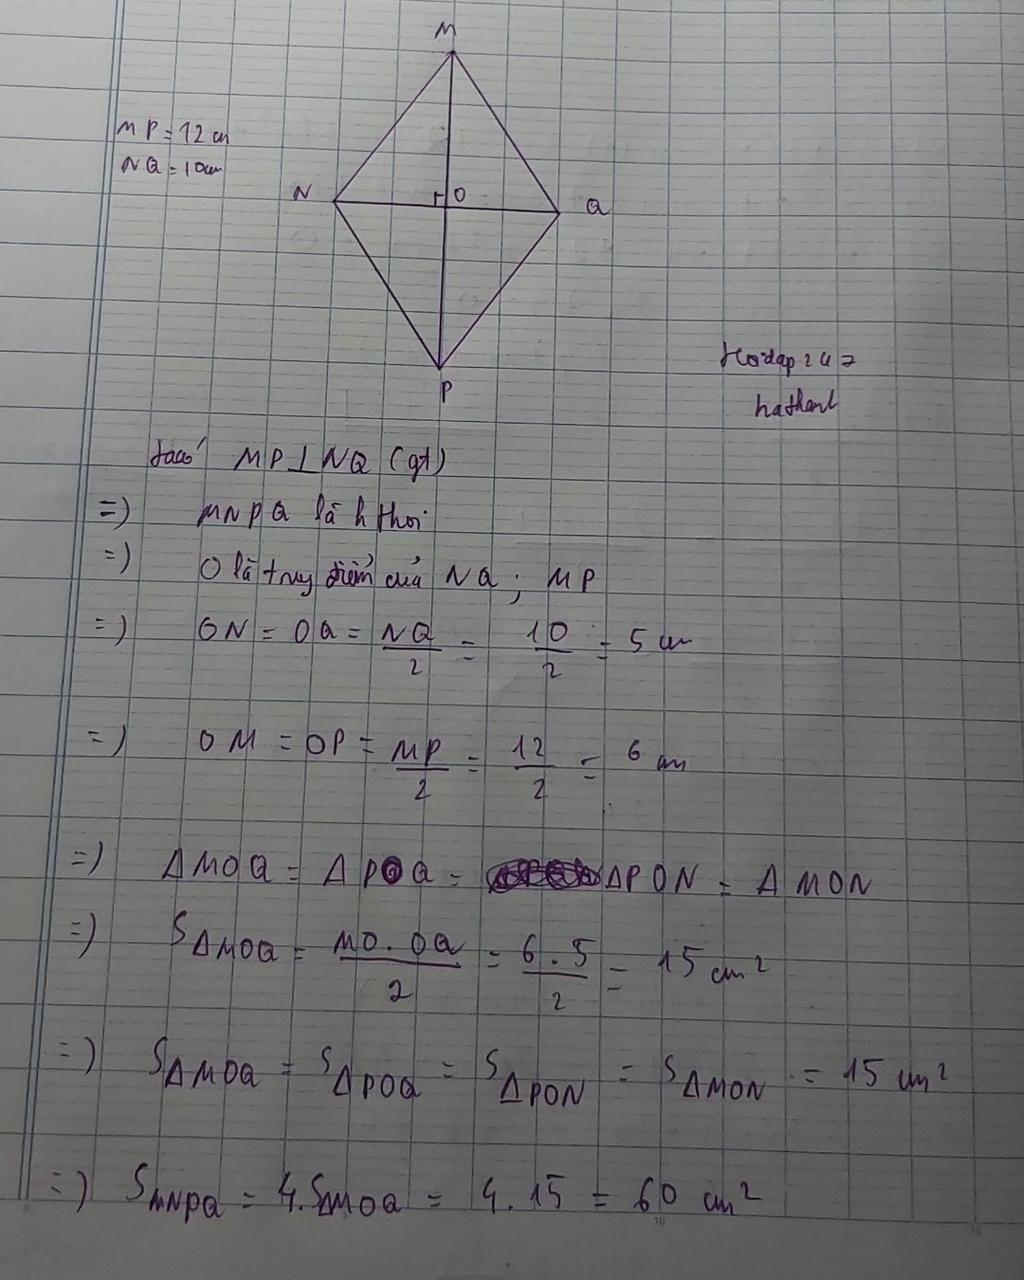 M
MP = 12 cm
NQ = 10cm
N
O
Q
P
Hoidap247
hathanl
ta có MP ⊥ NQ (gt)
=) MNPQ là h thoi
=) O là trung điểm của NQ ; MP
=) ON = OQ = NQ/2 = 10/2 = 5 cm
=) OM = OP = MP/2 = 12/2 = 6 cm
=) ΔMOQ = ΔPOQ = ΔPON = ΔMON
=) SΔMOQ = MO.OQ/2 = 6.5/2 = 15 cm²
=) SΔMOQ = SΔPOQ = SΔPON = SΔMON = 15 cm²
=) SMNPQ = 4.SΔMOQ = 4.15 = 60 cm²